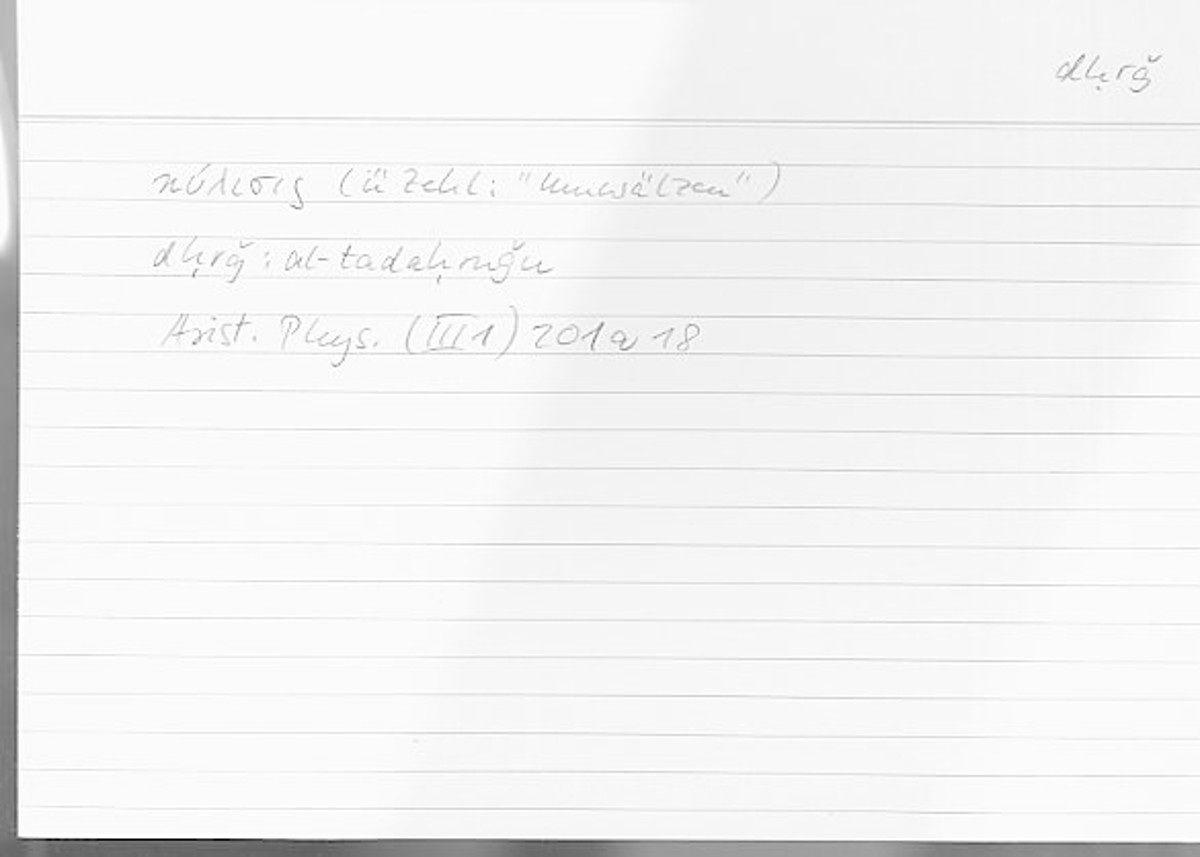 dḥrǧ
κύλισις (ü Zekl: "Umwälzen")
dḥrǧ: al-tadaḥruǧu
Arist. Phys. (III 1) 201a 18